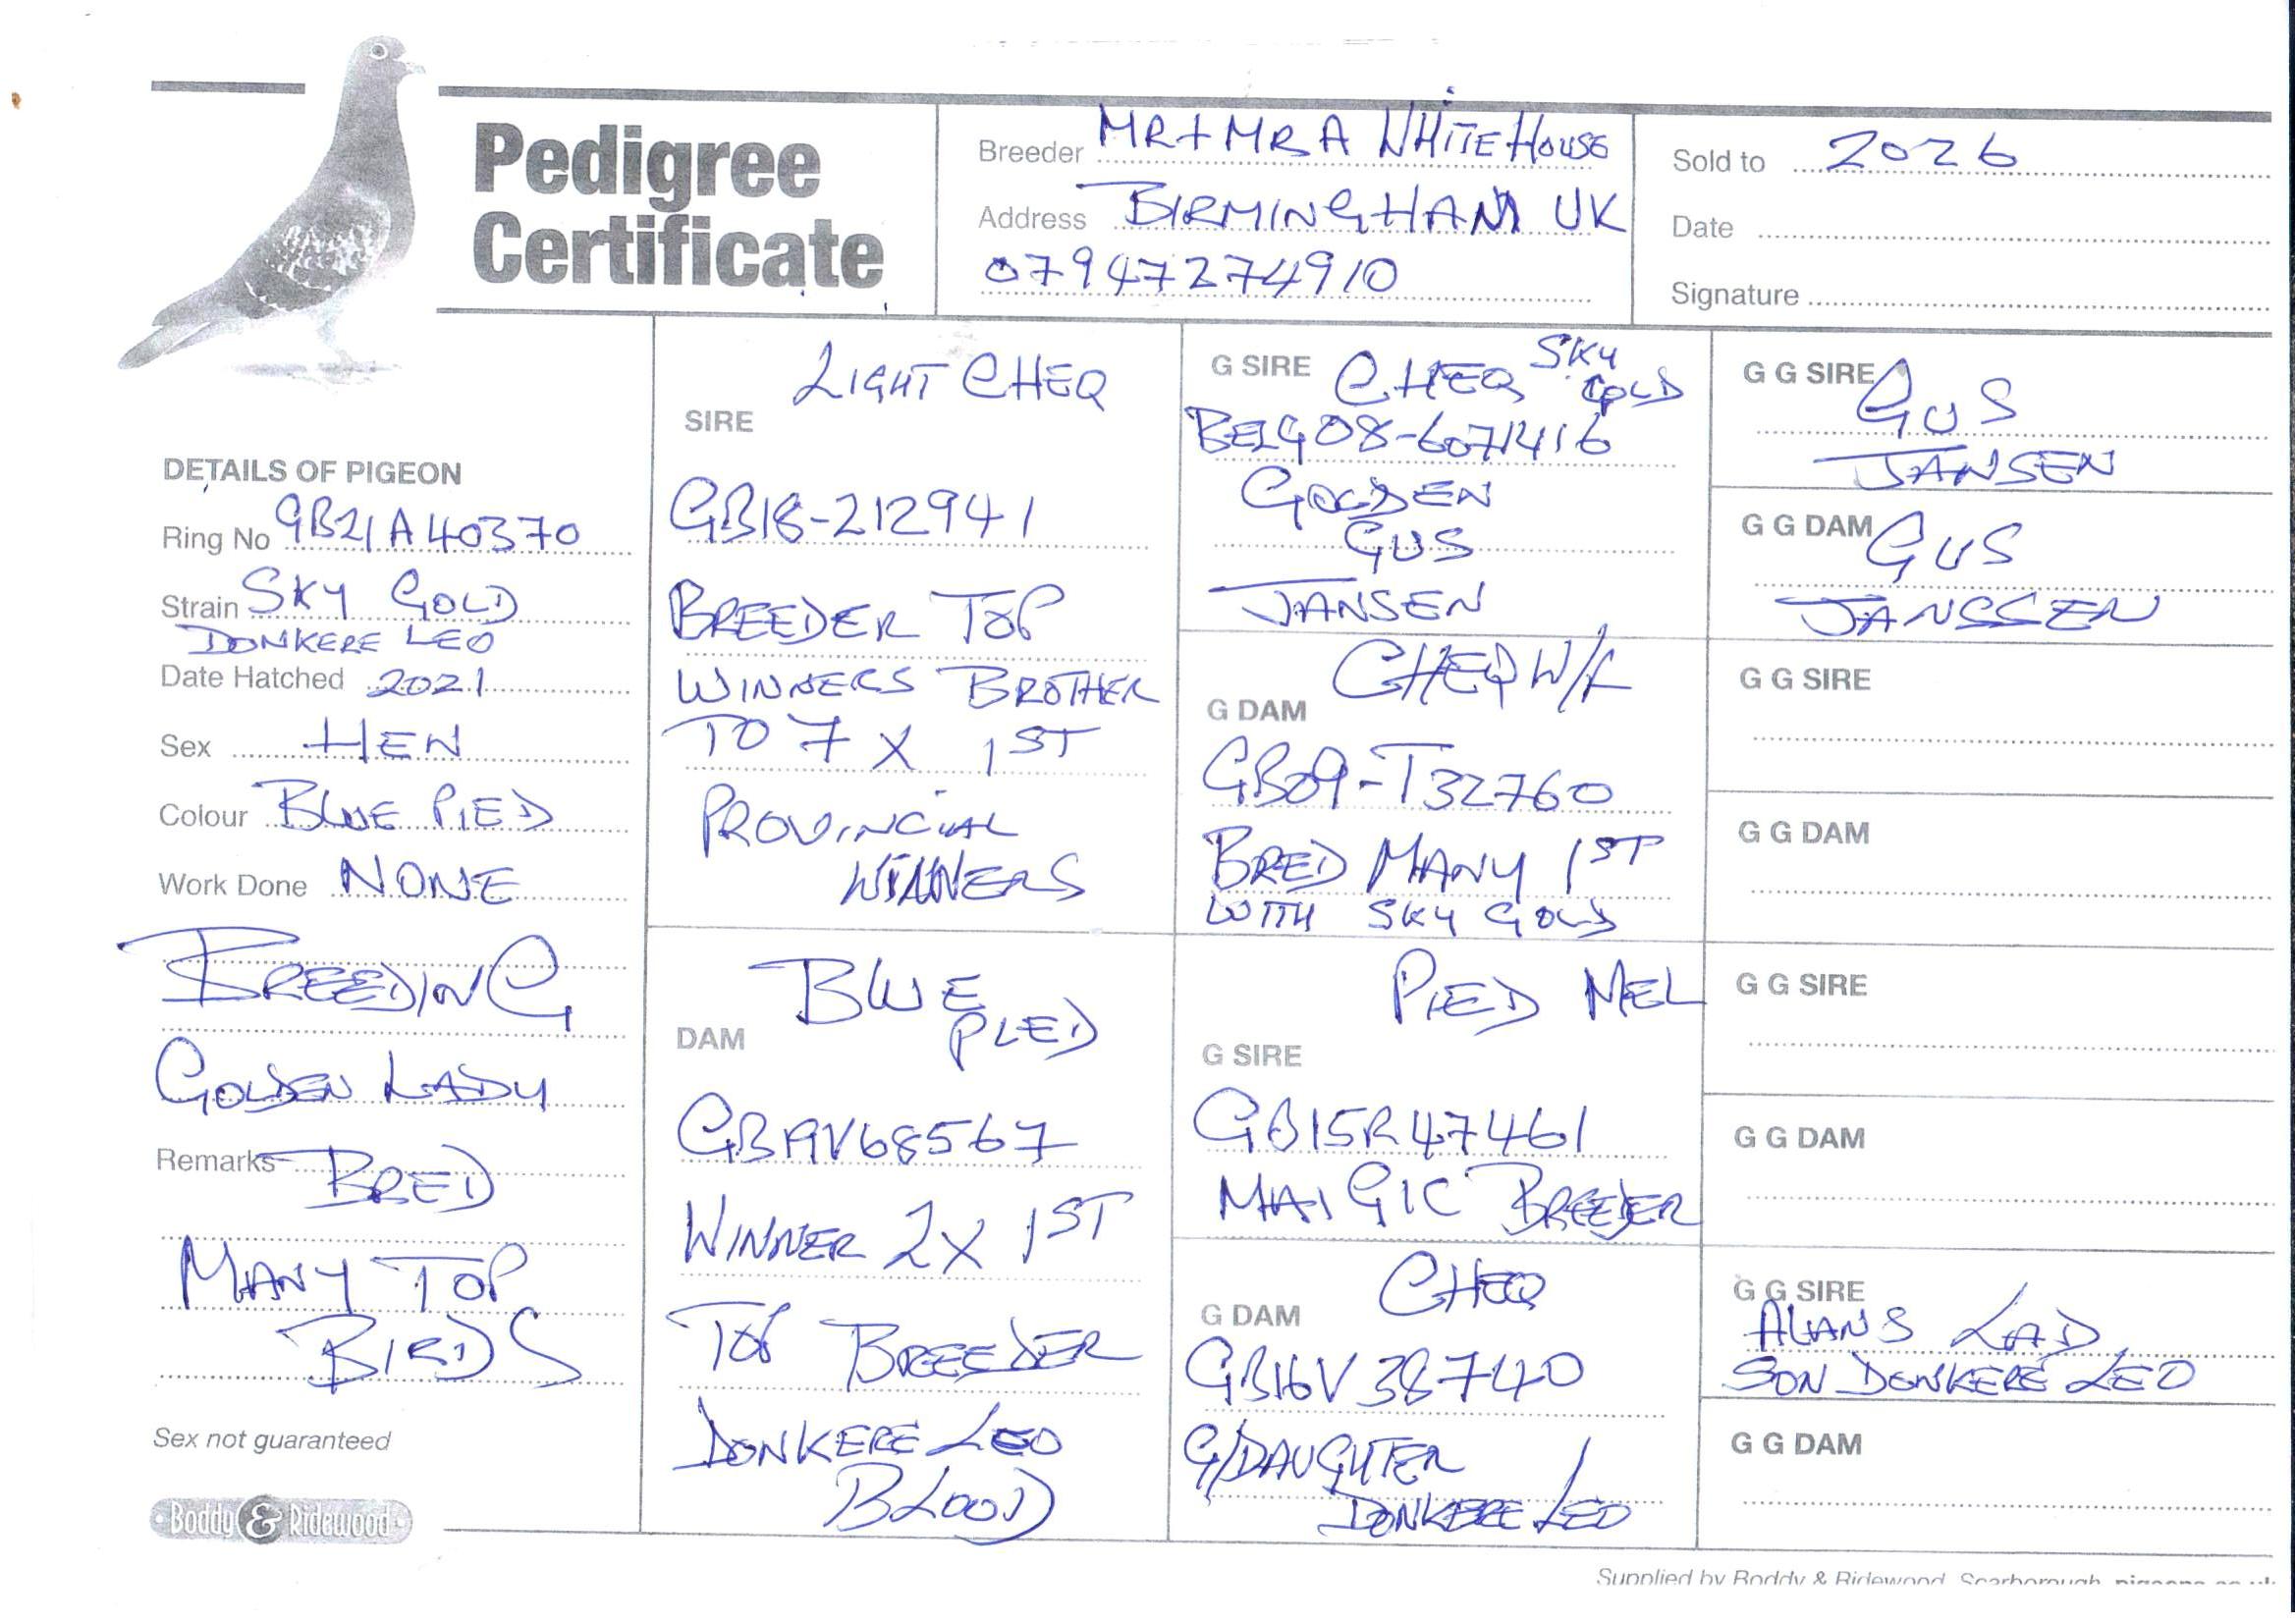 Pedigree
Certificate
Breeder MR+MRS A WHITEHOUSE
Address BIRMINGHAM UK
07947274910
Sold to 2026
Date
Signature
DETAILS OF PIGEON
Ring No GB21A40370
Strain SKY GOLD
DONKERE LEO
Date Hatched 2021
Sex HEN
Colour BLUE PIED
Work Done NONE
BREEDING
GOLDEN LADY
Remarks BRED
MANY TOP
BIRDS
Sex not guaranteed
Boddy & Ridewood
LIGHT CHEQ
SIRE
GB18-212941
BREEDER TOP
WINNERS BROTHER
TO 7 X 1ST
PROVINCIAL
WINNERS
BLUE
PIED
DAM
GB19V68567
WINNER 2X 1ST
TOP BREEDER
DONKERE LEO
BLOOD
G SIRE CHEQ SKY
GOLD
BELG08-6071416
GOLDEN
GUS
JANSEN
CHEQ W/F
G DAM
GB09-T32760
BRED MANY 1ST
WITH SKY GOLD
PIED MEL
G SIRE
GB15R47461
MAIGIC BREEDER
CHEQ
G DAM
GB16V38740
G/DAUGHTER
DONKERE LEO
G G SIRE GUS
JANSEN
G G DAM GUS
JANSSEN
G G SIRE
G G DAM
G G SIRE
G G DAM
G G SIRE
ALANS LAD
SON DONKERE LEO
G G DAM
Supplied by Boddy & Ridewood, Scarborough, pigeons.co.uk